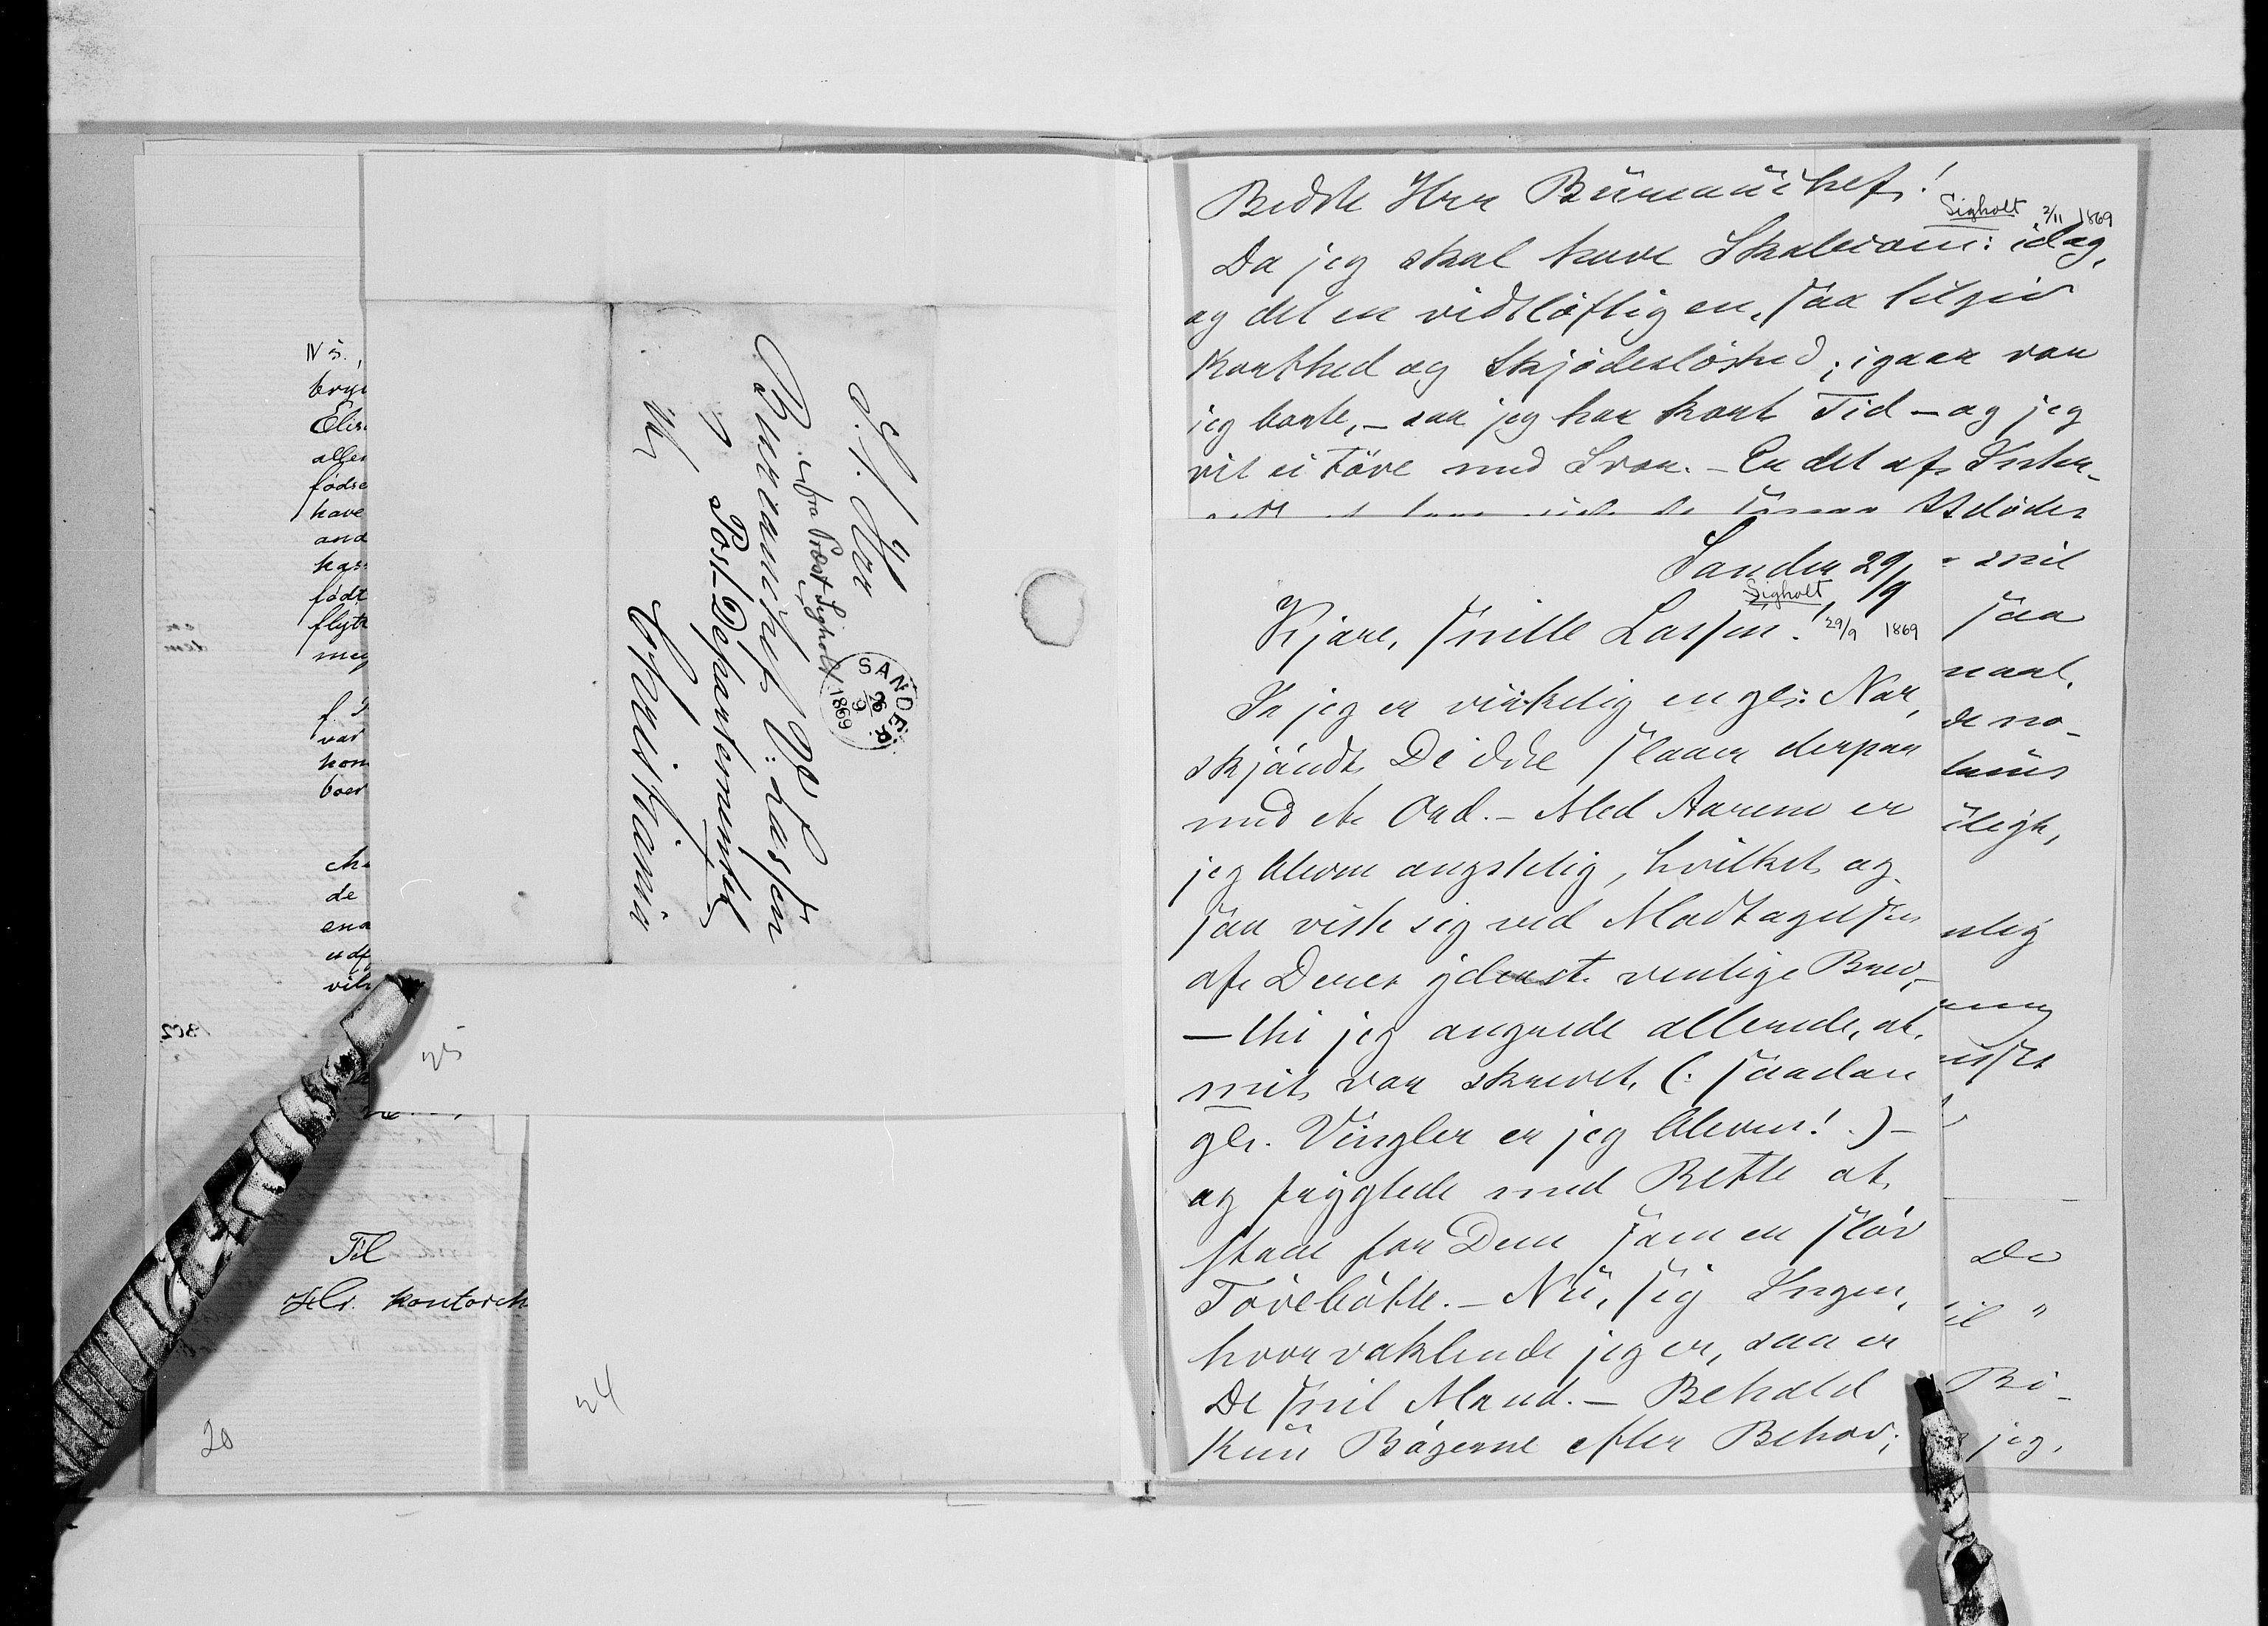 N s.,
bryl
Elis
aller
fødse
have
and
has
født
flytt
meg
f. I
var
kom
boer
de
ena
udf
vil
1802
25
Til
Hr. kontorch
20
24
S. T. Herr
Bureauchef W: Lassen
fra Præst Sigholt
Post-Departementet
Christiania
SANDER
26
9
1869
Bedste Herr Bureauchef!
Sigholt 2/11 1869
Da jeg skal have Skolecom: idag,
og det en vidtløftig en, saa tilgiv
Korthed og Skjødesløshed; igaar var
jeg borte, - saa jeg har kort Tid - og jeg
vil ei tøve med Svar. - Er det af Inter-
Sander 29/9
Sigholt
29/9 1869
Kjære, snille Lassen!
Ja jeg er virkelig en gl: Nar,
skjøndt De ikke slaaer derpaa
med et Ord. - Med Aarene er
jeg bleven ængstelig, hvilket og
saa viste sig ved Modtagelsen
af Deres yderst venlige Brev,-
- thi jeg angrede allerede, at
mit var skrevet, (: saadan
gl. Vingler er jeg bleven! :) -
og frygtede med Rette at
staae for Dem som en sløv
Tøvebøtte. - Nu, sig Ingen,
hvor vaklende jeg er, saa er
De snil Mand. - Behold
kun Bøgerne efter Behov;
snil
saa
naal,
de no-
nlig
De
il "
Bi-
jeg,